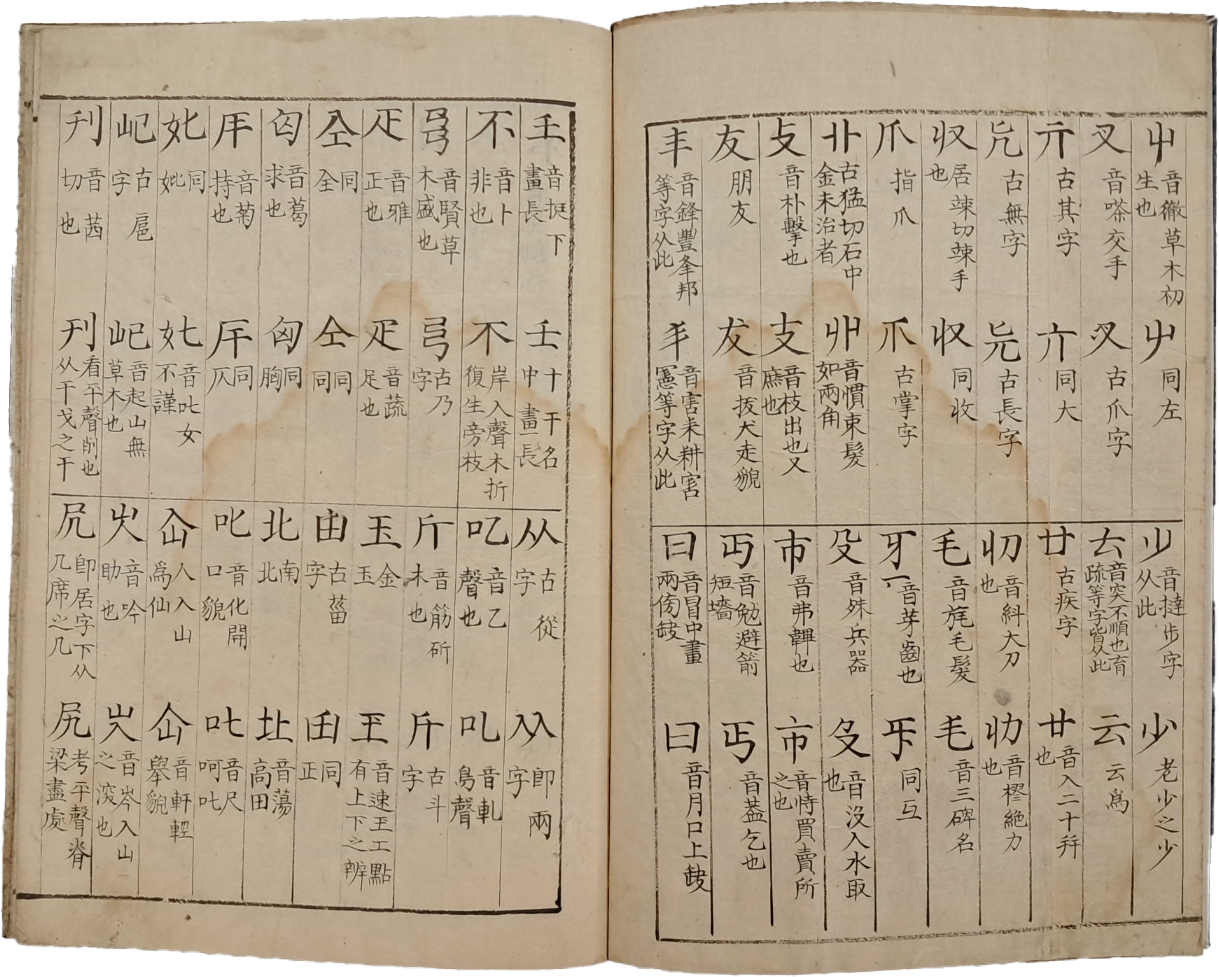 屮 音徹草木初生也 屮 同左
叉 音嗏交手 㕚 古爪字
亓 古其字 亣 同大
古無字 兏 古長字
収 居竦切竦手也 収 同收
爪 指爪 爪 古掌字
卝 古猛切石中金未治者 丱 音慣束髮如兩角
攴 音朴擊也 支 音枝出也又庶也
友 朋友 犮 音拔犬走貌
丰 音鋒豐夆邦等字从此 丯 音害耒耕害憲等字从此
少 音撻步字从此 少 老少之少
𠫓 音突不順也育疏等字皆从此 云 云爲
廿 古疾字 廿 音入二十并也
音斜大刀也 音樛絶力也
毛 音旄毛髮 毛 音三碑名
牙 音芽齒也 㸦 同互
殳 音殊兵器 𠬛 音沒入水取也
巿 音弗韠也 市 音時買賣所之也
丏 音勉避箭短墻 丐 音葢乞也
冃 音冒中畫兩傍缺 曰 音月口上缺
𡈼 音挺下畫長 壬 十干名中畫一長
不 音卜非也 不 岸入聲木折復生旁枝
音賢草木盛也 弓 古乃字
疋 音雅正也 疋 音蔬足也
仝 同全 仝 同同
匃 音葛求也 匈 同胸
音菊持也 同仄
同妣 奼 音吒女不謹
古扈字 屺 音起山無草木也
刌 音茜切也 刊 看平聲削也从干戈之干
从 古從字 从 即兩字
音乙聲也 音軋鳥聲
斤 音筋斫木也 斤 古斗字
玉 金玉 王 音速王工點有上下之辨
甶 古菑字 同正
北 南北 音蕩高田
叱 音化開口貌 叱 音尺呵叱
仚 人入山爲仙 仚 音軒輕舉貌
音吟助也 音岑入山之深也
凥 即居字下从几席之几 尻 考平聲脊梁盡處